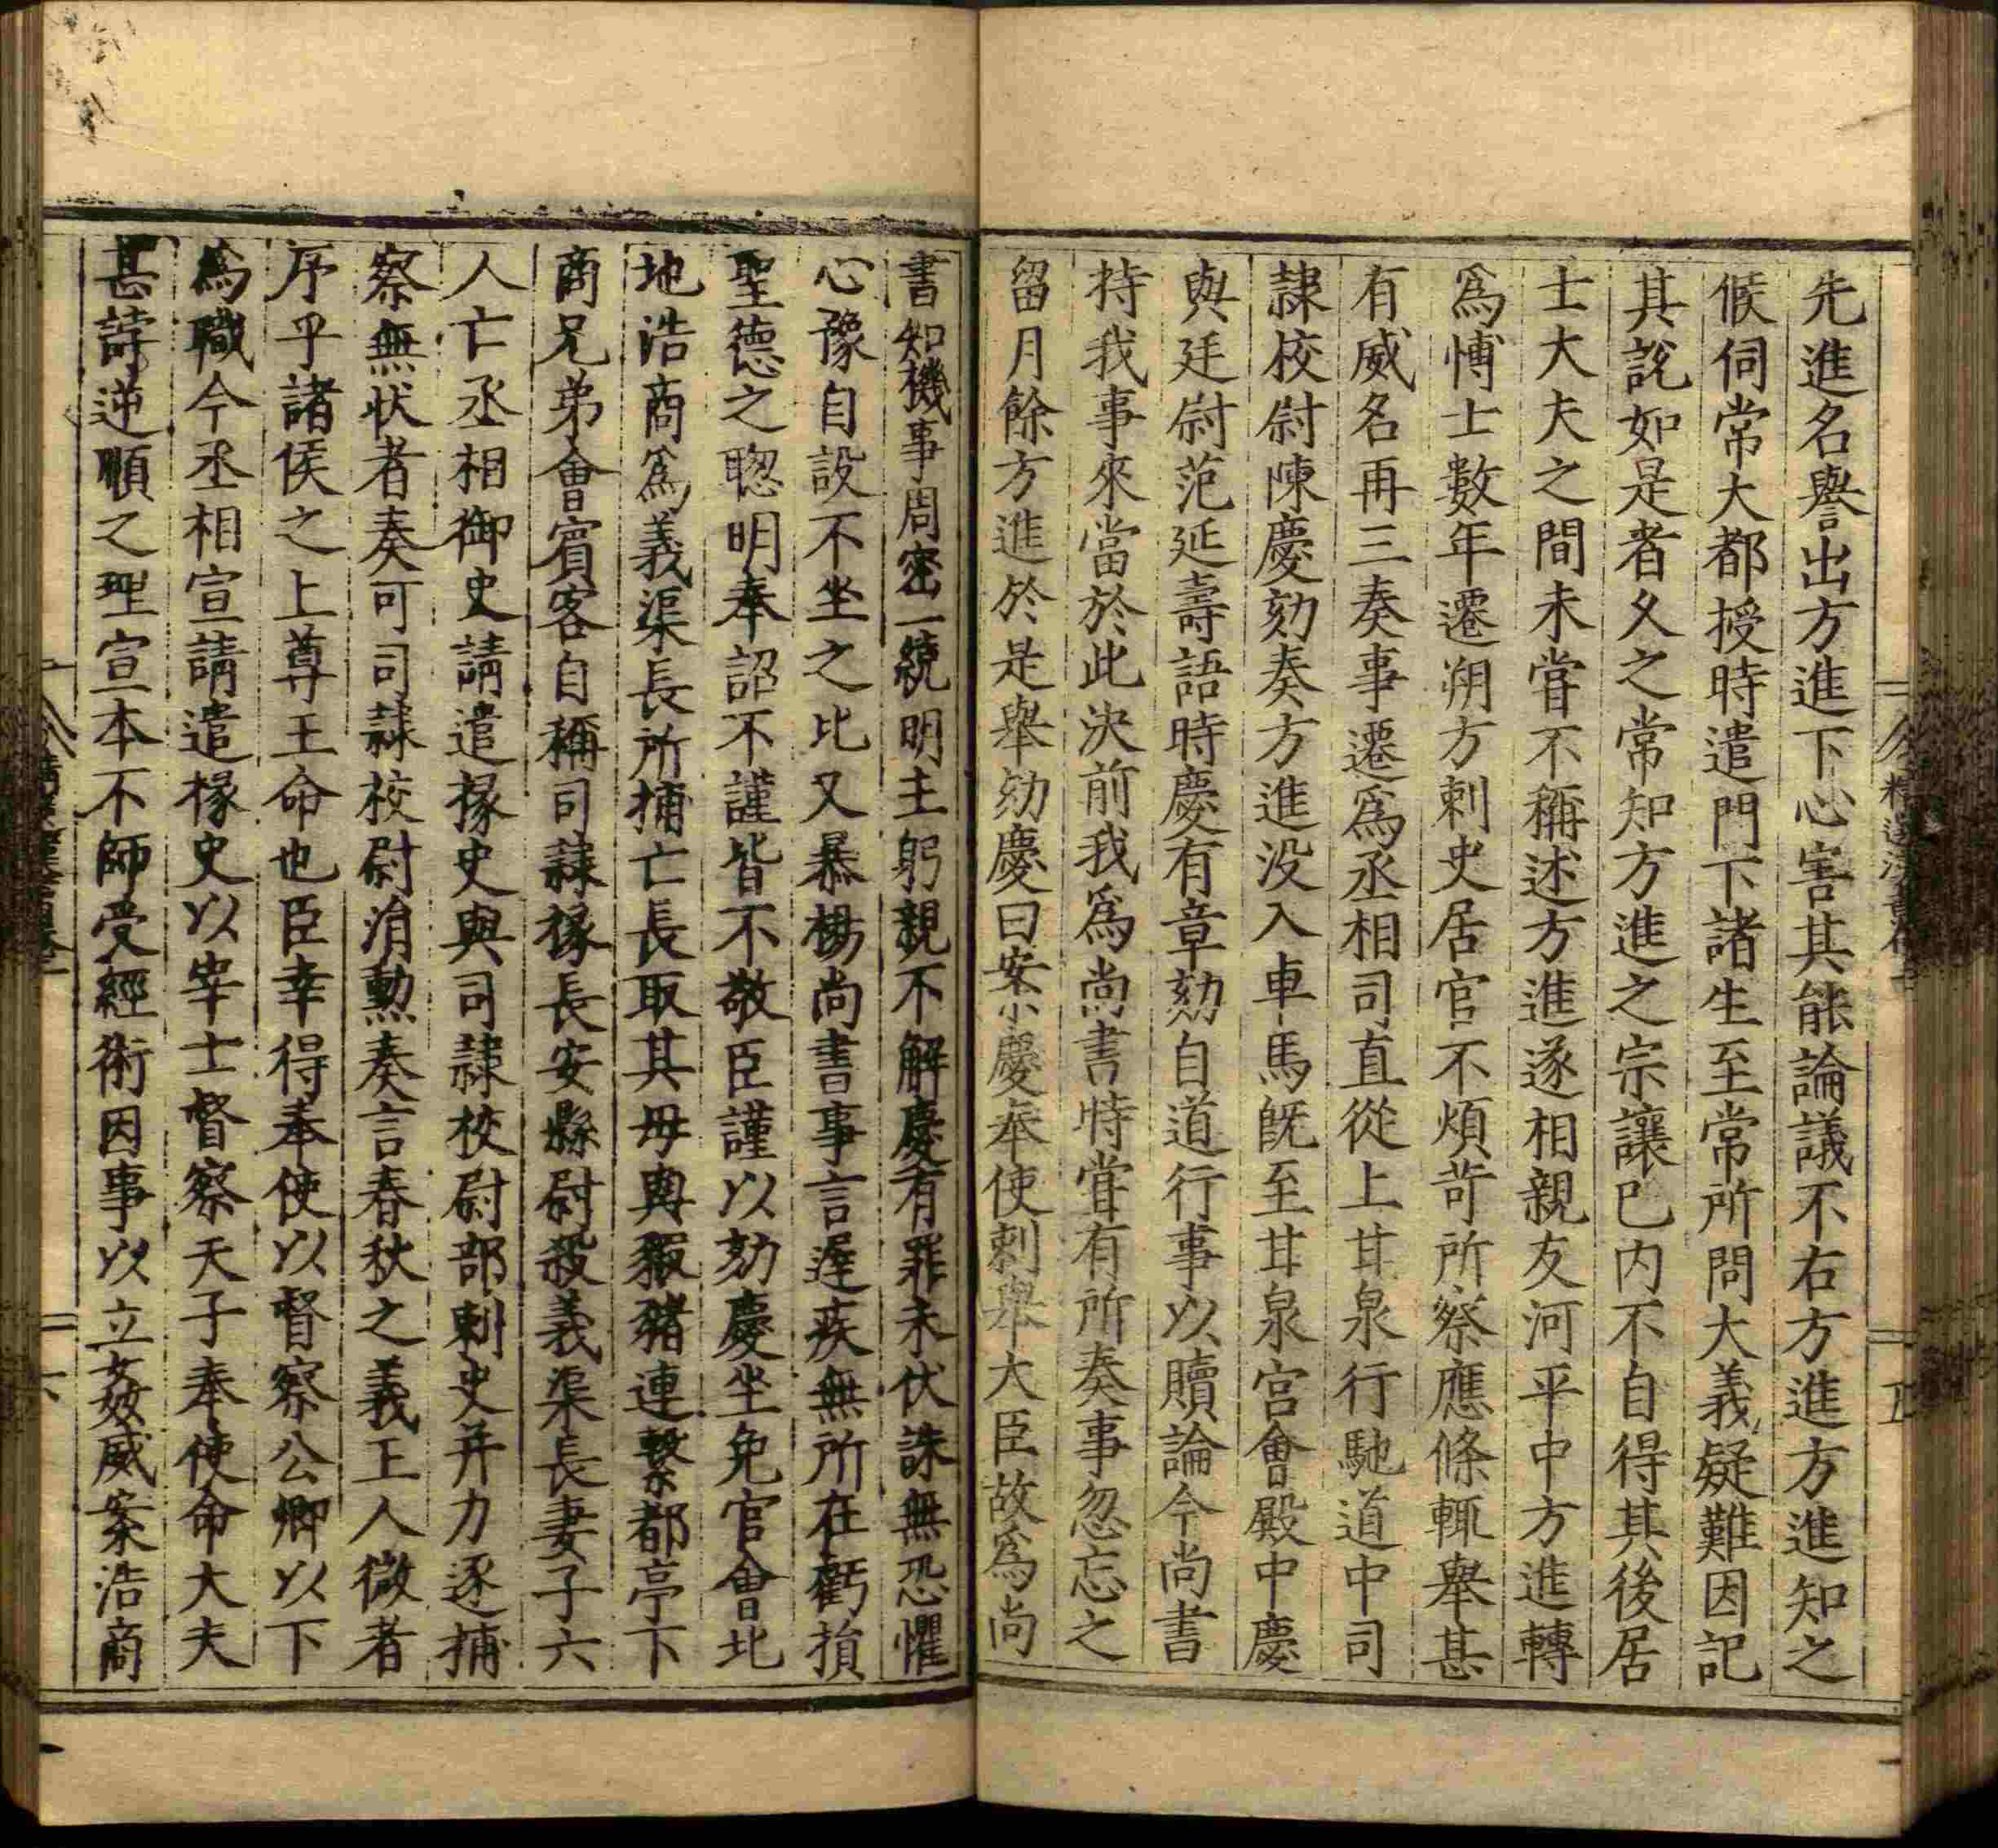 先進名譽出方進下心害其能論議不右方進方進知之
候伺常大都授時遣門下諸生至常所問大義疑難因記
其說如是者久之常知方進之宗讓已內不自得其後居
士大夫之間未嘗不稱述方進遂相親友河平中方進轉
爲博士數年遷朔方刺史居官不煩苛所察應條輒舉甚
有威名再三奏事遷爲丞相司直從上甘泉行馳道中司
隷校尉陳慶劾奏方進没入車馬既至甘泉宮會殿中慶
與廷尉范延壽語時慶有章劾自道行事以贖論今尚書
持我事來當於此決前我爲尚書時嘗有所奏事忽忘之
留月餘方進於是舉劾慶曰案慶奉使刺舉大臣故爲尚
書知機事周密一統明主躬親不解慶有罪未伏誅無恐懼
心豫自設不坐之比又暴楊尚書事言遲疾無所在虧損
聖德之聰明奉詔不謹皆不敬臣謹以劾慶坐免官會北
地浩商爲義渠長所捕亡長取其母與豭豬連繫都亭下
商兄弟會賓客自稱司隷掾長安縣尉殺義渠長妻子六
人亡丞相御史請遣掾史與司隷校尉部刺史并力逐捕
察無狀者奏可司隷校尉涓勳奏言春秋之義王人微者
序乎諸侯之上尊王命也臣幸得奉使以督察公卿以下
爲職今丞相宣請遣掾史以宰士督察天子奉使命大夫
甚誖逆順之理宣本不師受經術因事以立姦威案浩商